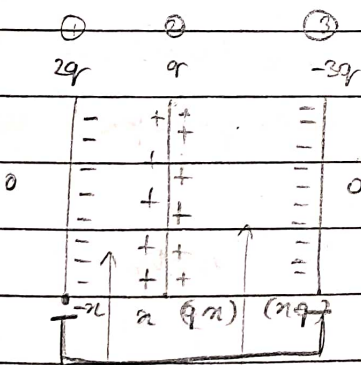 ① ② ③
2q q -3q
0 0
-x x (q-x) (x-q)